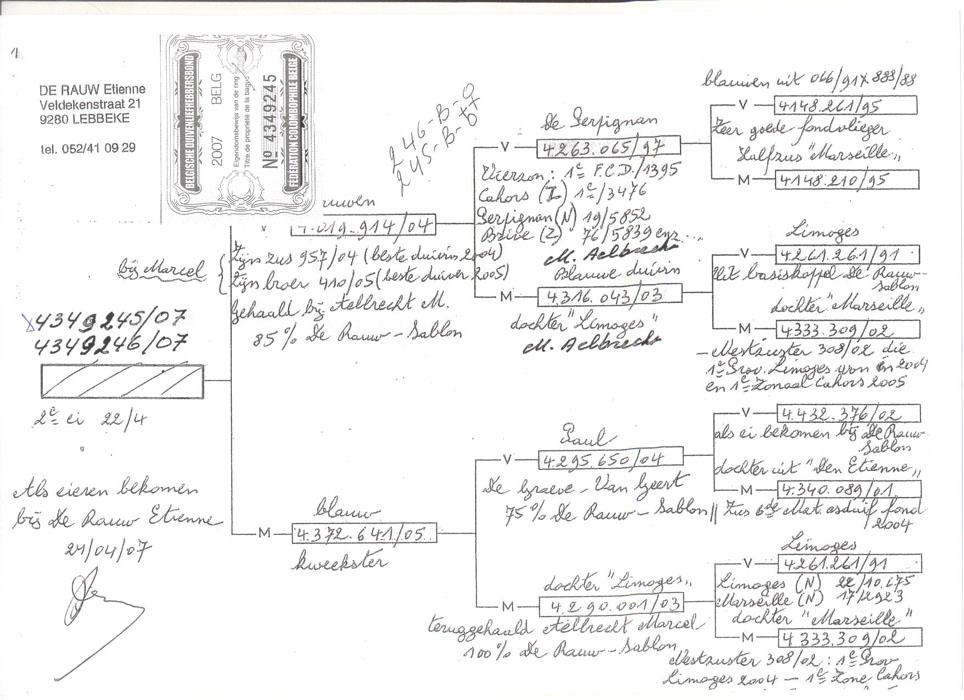 1
DE RAUW Etienne
Veldekenstraat 21
9280 LEBBEKE
tel. 052/41 09 29
BELGISCHE DUIVENLIEFHEBBERSBOND
2007 BELG
Eigendomsbewijs van de ring
Titre de propriété de la bague
No 4349245
FEDERATION COLOMBOPHILE BELGE
246-B-07
245-B-07
.019.914/04
bij Marcel
Zijn zus 957/04 (beste duivin 2004)
Zijn broer 410/05 (beste duiver 2005)
Gehaald bij Aelbrecht M.
85% De Rauw-Sablon
X4349245/07
4349246/07
2e ei 22/4
Als eieren bekomen
bij De Rauw Etienne
21/04/07
M
blauw
4.372.641/05
kweekster
De Perpignan
V
4263.065/97
Vierzon: 1e F.C.D./1395
Cahors (Z) 1e/3476
Perpignan (N) 19/5852
Brive (Z) 76/5839 enz...
M. Aelbrecht
Blauwe duivin
M
4.316.043/03
dochter "Limoges"
M. Aelbrecht
Paul
V
4.295.650/04
De Graeve - Van Geert
75% De Rauw-Sablon
dochter "Limoges"
M
4.290.001/03
teruggehaald Aelbrecht Marcel
100% De Rauw-Sablon
blauwen uit 046/91 x 888/88
V
4148.261/95
Zeer goede fondvlieger
Halfzus "Marseille"
M
4148.210/95
Limoges
V
4.261.261/91
Uit basiskoppel De Rauw-
Sablon
dochter "Marseille"
M
4333.309/02
- Nestzuster 308/02 die
1e Prov. Limoges won in 2004
en 1e Zonaal Cahors 2005
V
4.432.376/02
als ei bekomen bij De Rauw
Sablon
dochter uit "Den Etienne"
M
4.340.089/01
Zus 6de Nat. asduif fond
2004
Limoges
V
4261.261/91
Limoges (N) 22/10.175
Marseille (N) 17/2923
dochter "Marseille"
M
4333.309/02
Nestzuster 308/02: 1e Prov
Limoges 2004 - 1e Zone Cahors